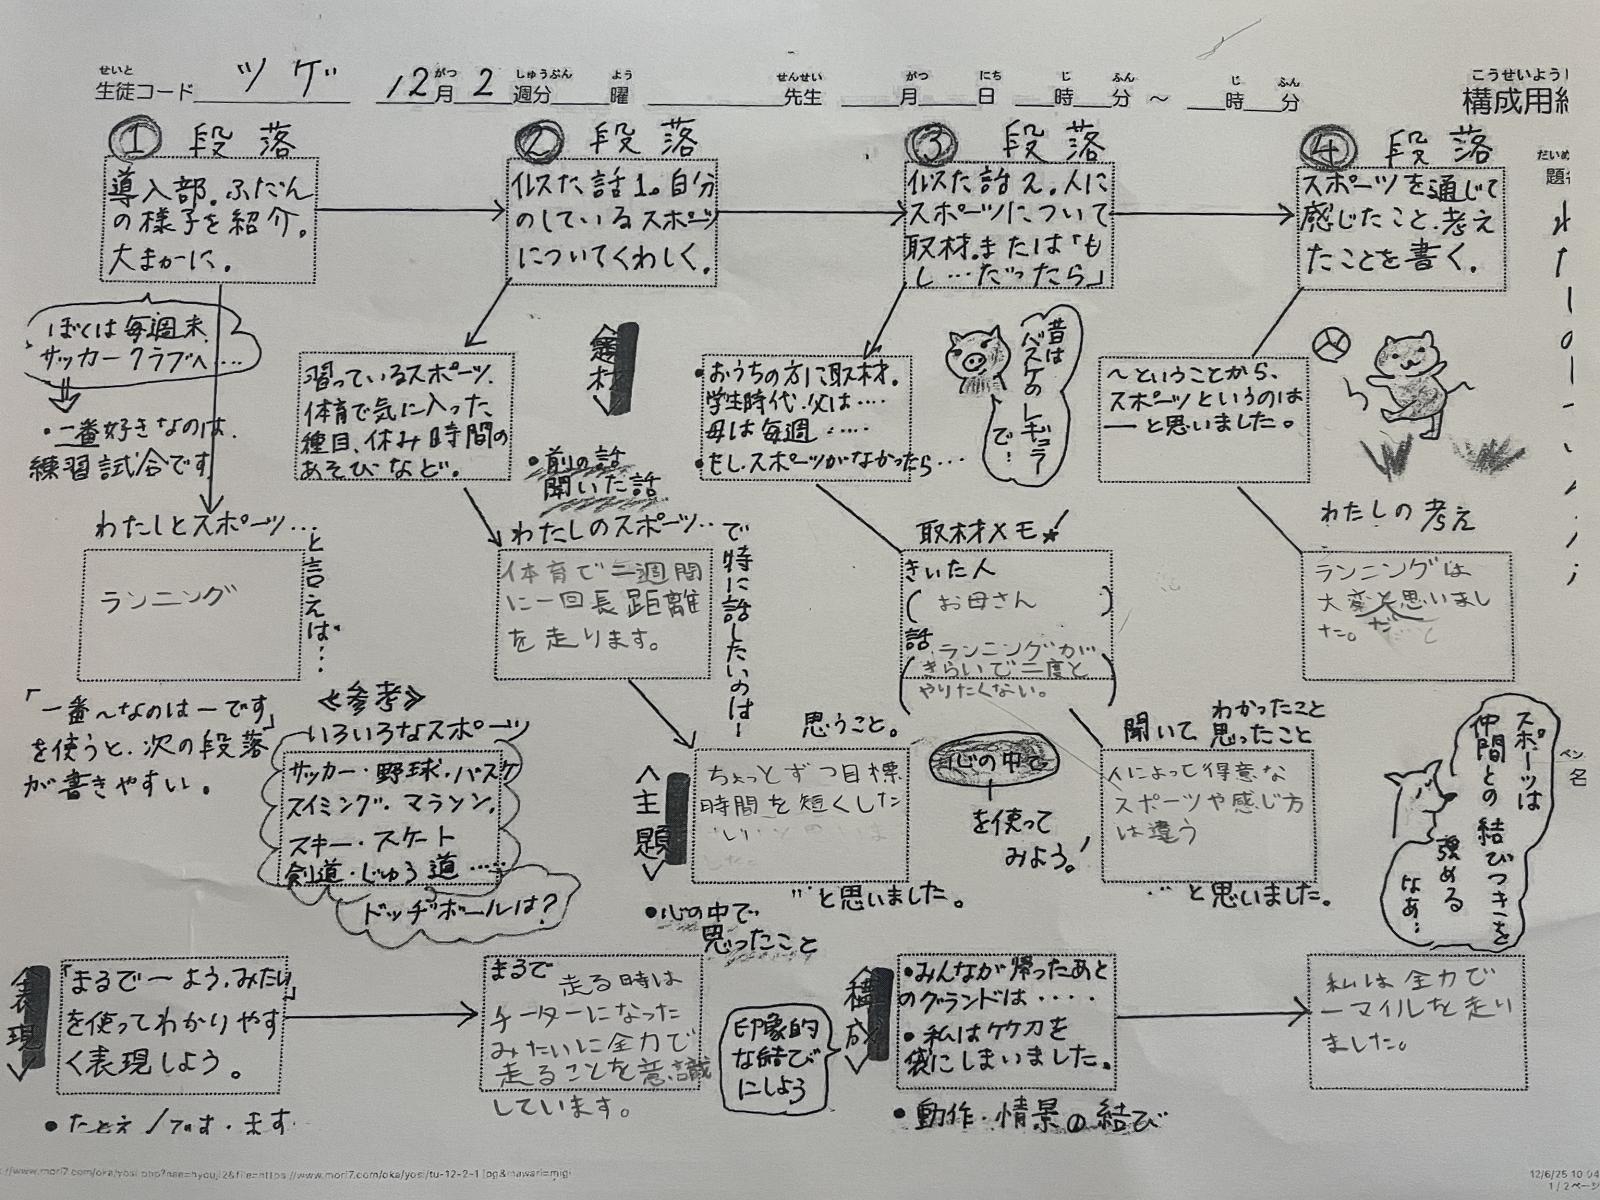 せいと がつ しゅうぶん よう せんせい がつ にち じ ふん じ ふん
生徒コード ツゲ 12月2週分 曜 先生 月 日 時 分 ～ 時 分
こうせいよう
構成用
だいめ
題
① 段落
導入部。ふだん
の様子を紹介。
大まかに。
② 段落
似た話1。自分
のしているスポーツ
についてくわしく。
③ 段落
似た話2。人に
スポーツについて
取材。または「も
し…だったら」
④ 段落
スポーツを通じて
感じたこと、考え
たことを書く。
ぼくは毎週末、
サッカークラブへ....
・一番好きなのは、
練習試合です
習っているスポーツ、
体育で気に入った
種目、休み時間の
あそびなど。
＜題材＞
・前の話
聞いた話
・おうちの方に取材。
学生時代、父は....
母は毎週.....
・もし、スポーツがなかったら...
昔は
バスケの
レギュラー
で…
～ということから、
スポーツというのは
ーと思いました。
わたしとスポーツ...
と言えば…
ランニング
わたしのスポーツ..
体育で二週間
に一回長距離
を走ります。
で特に話したいのはー
取材メモ
きいた人
(お母さん)
話
(ランニングが
きらいで二度と
やりたくない。)
わたしの考え
ランニングは
大変だと思いまし
た。
「一番～なのはーです」
を使うと、次の段落
が書きやすい。
≪参考≫
いろいろなスポーツ
サッカー・野球・バスケ
スイミング・マラソン、
スキー・スケート
剣道・じゅう道.....
ドッヂボールは？
＜主題＞
・心の中で
思ったこと
思うこと。
ちょっとずつ目標
時間を短くした
…と思いました。
心の中で
を使って
みよう。
聞いて わかったこと
思ったこと
人によって得意な
スポーツや感じ方
は違う
…と思いました。
スポーツは
仲間との結びつきを
強める
なあ…
ペン
名
＜表現＞
「まるで～よう、みたい」
を使ってわかりやす
く表現しよう。
・たとえ/です・ます
まるで
走る時は
チーターになった
みたいに全力で
走ることを意識
しています。
印象的
な結び
にしよう
＜構成＞
・みんなが帰ったあと
のグランドは....
・私はケウ刀を
袋にしまいました。
・動作・情景の結び
私は全力で
一マイルを走り
ました。
://www.mori7.com/oka/yosi.php?nae=hyouji2&file=https://www.mori7.com/oka/yosi/tu-12-2-1.jpg&mawari=migi
12/6/25 10:04
1/2ページ